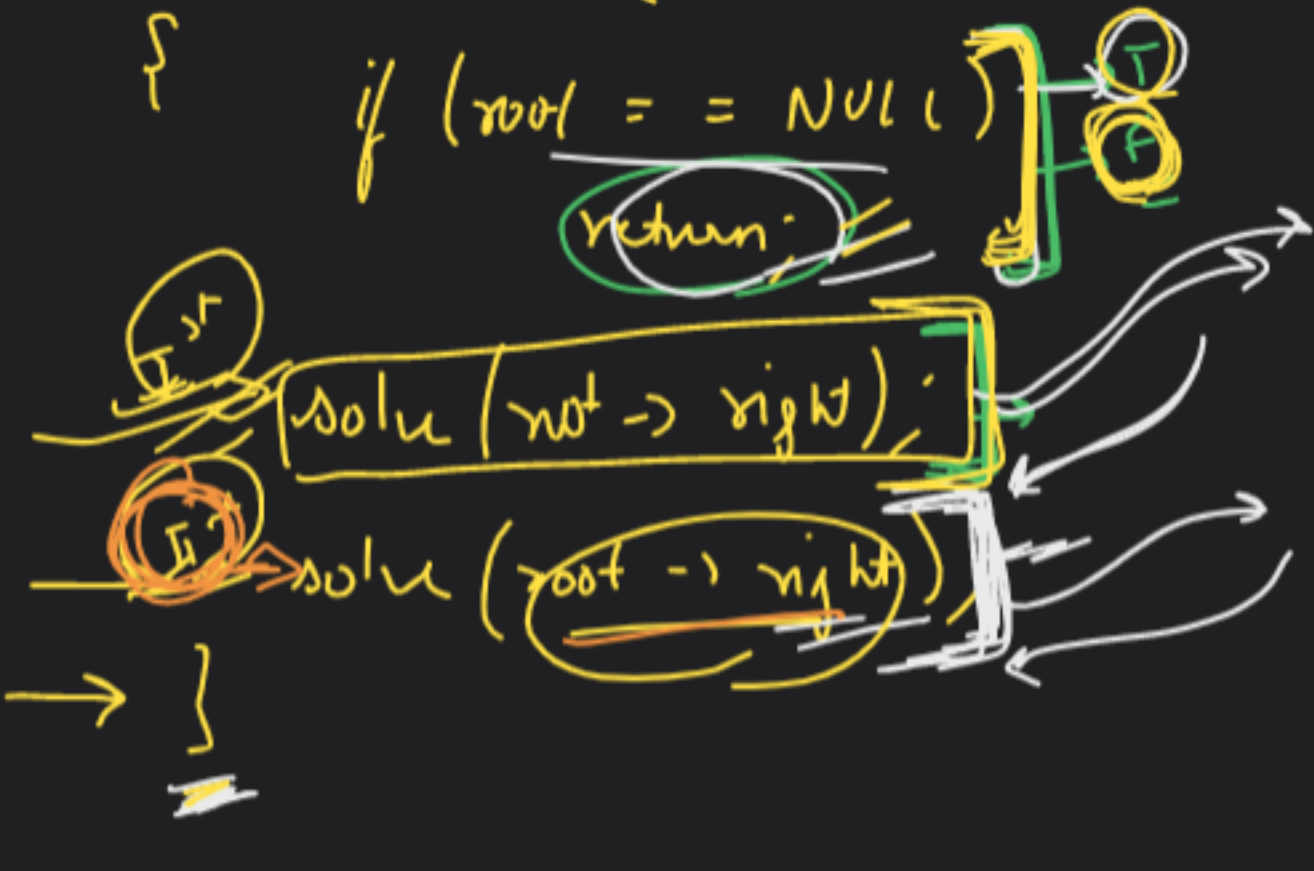 {
if (root == NULL) T
return; F
Ist solve (root -> right);
II solve (root -> right);
}